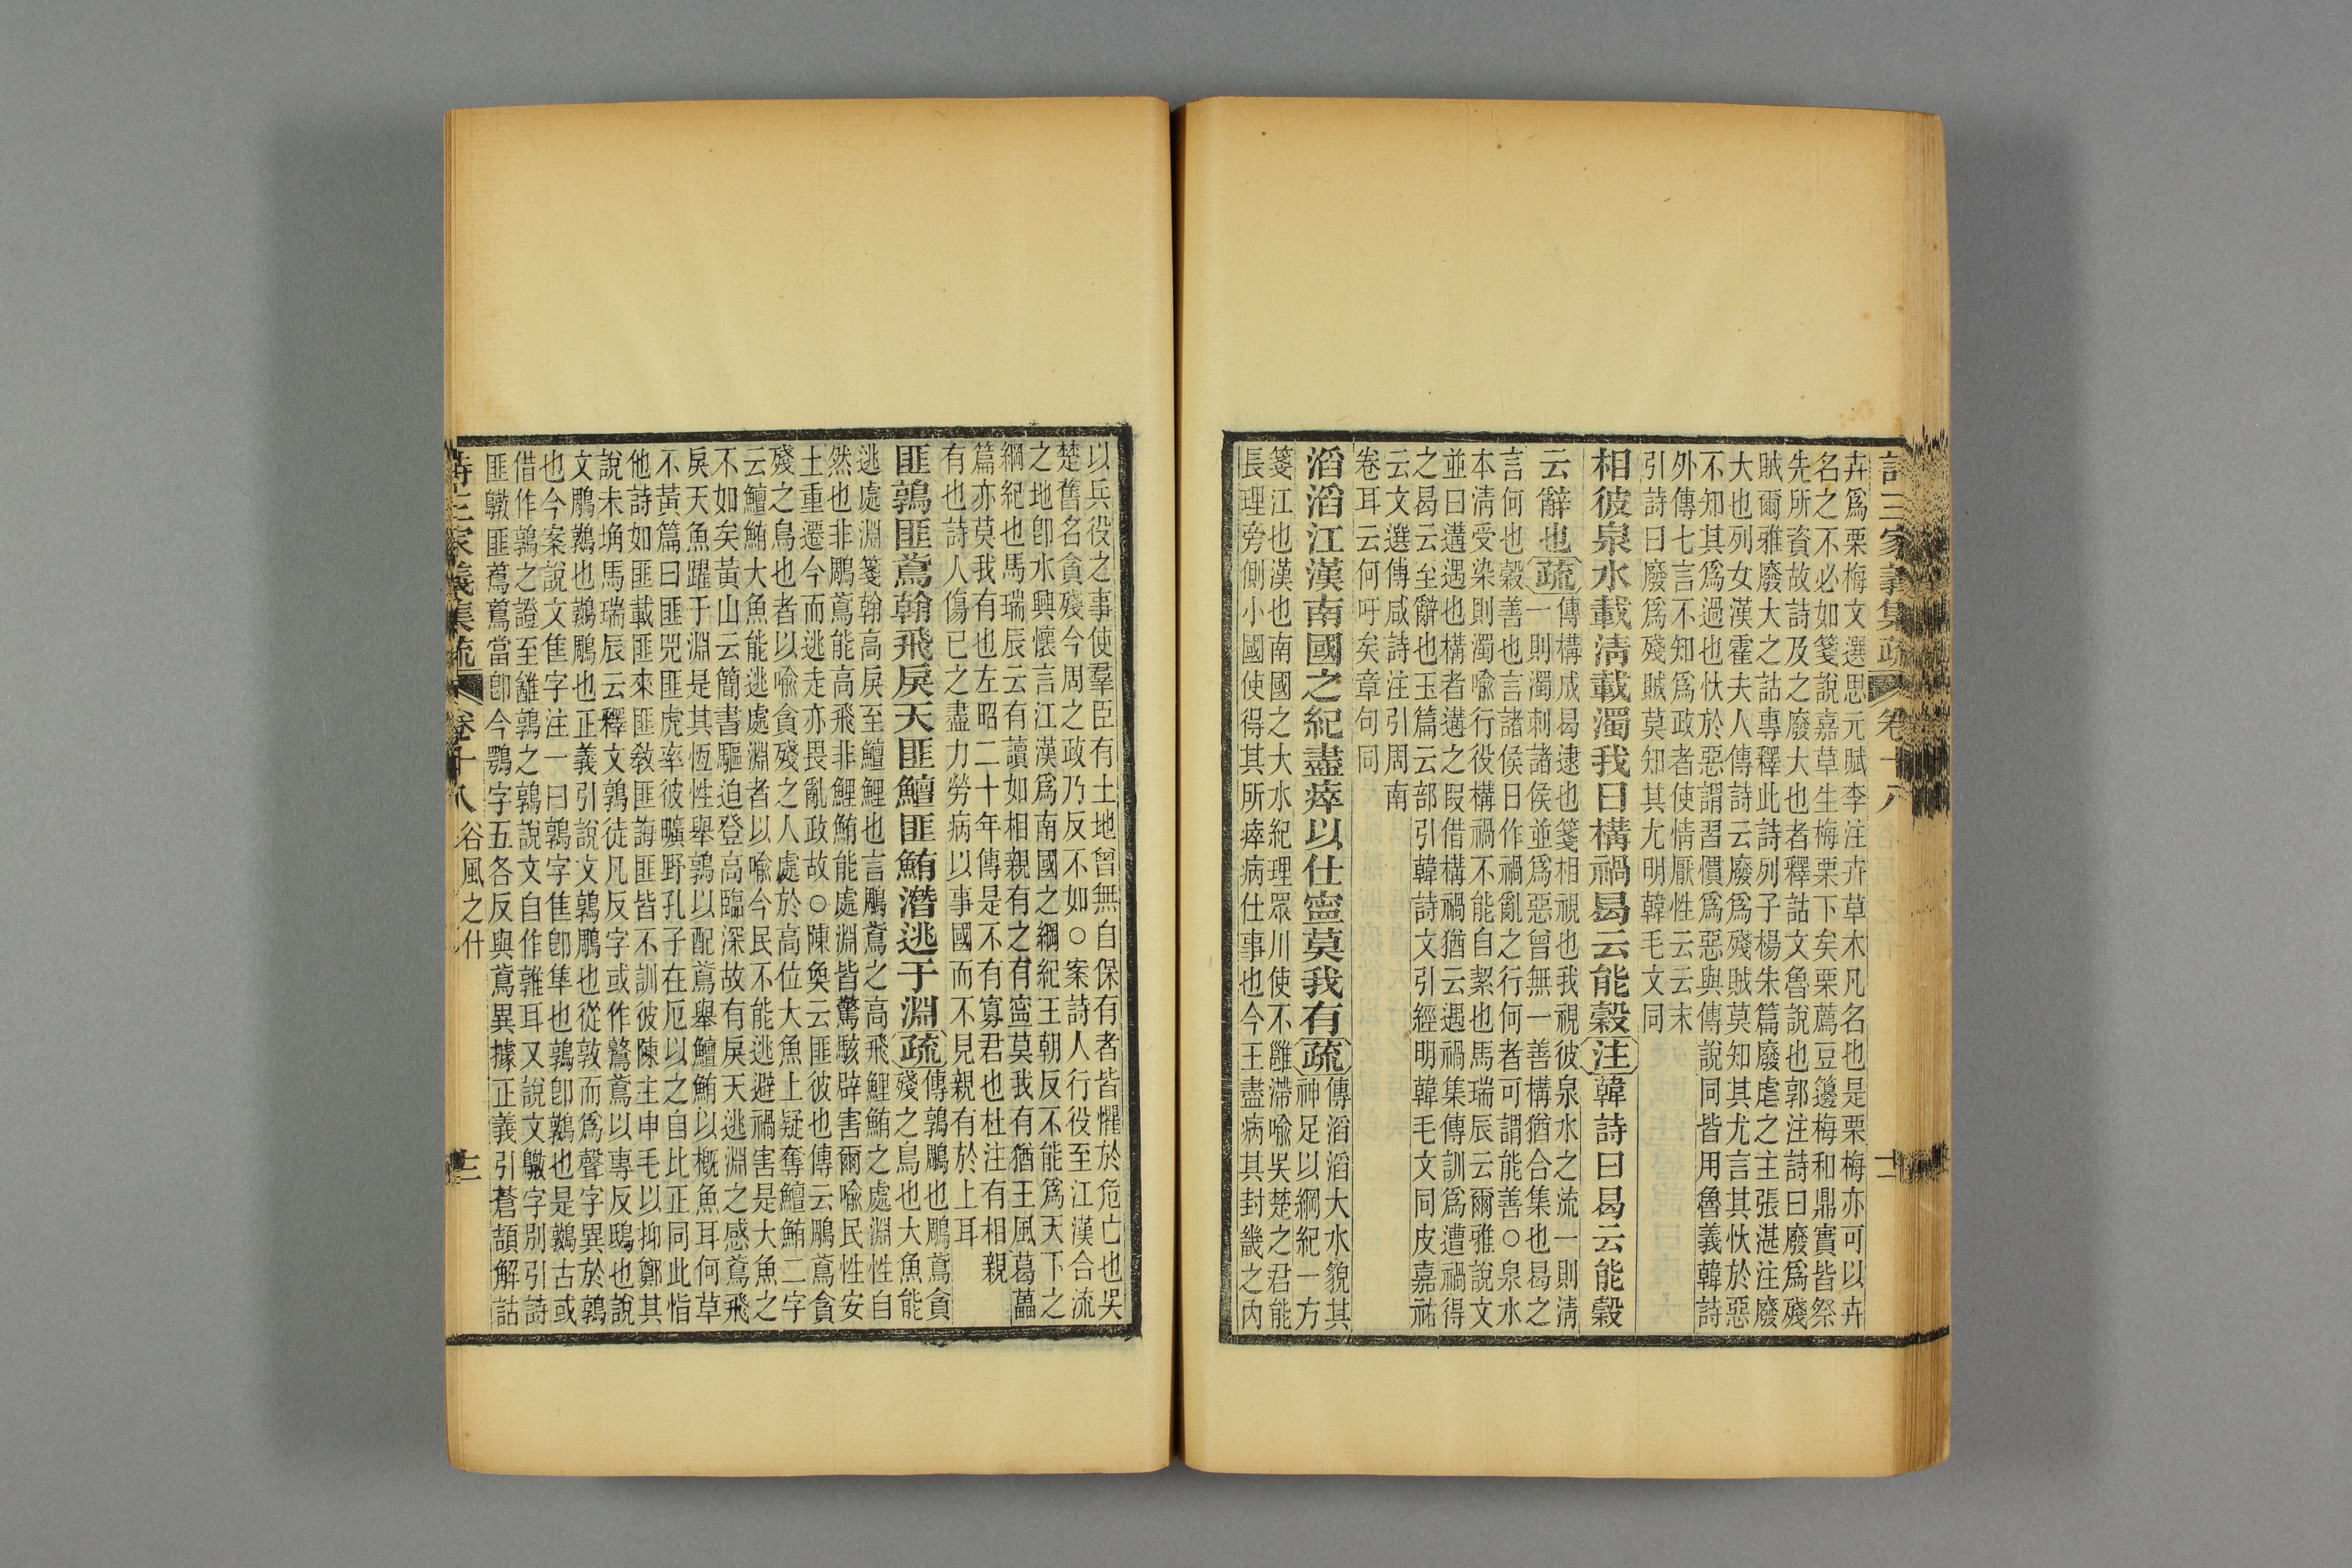 詩三家義集疏 卷十八 十二
卉爲栗梅文選思元賦李注卉草木凡名也是栗梅亦可以卉
名之不必如箋說嘉草生梅栗下矣栗薦豆籩梅和鼎實皆祭
先所資故詩及之廢大也者釋詁文魯說也郭注詩曰廢爲殘
賊爾雅廢大之詁專釋此詩列子楊朱篇廢虐之主張湛注廢
大也列女漢霍夫人傳詩云廢爲殘賊莫知其尤言其忕於惡
不知其爲過也忕於惡謂習慣爲惡與傳說同皆用魯義韓詩
外傳七言不知爲政者使情厭性云云末
引詩曰廢爲殘賊莫知其尤明韓毛文同
相彼泉水載清載濁我日構禍曷云能穀注韓詩曰曷云能穀
云辭也疏
傳構成曷逮也箋相視也我視彼泉水之流一則清
一則濁刺諸侯並爲惡曾無一善構猶合集也曷之
言何也穀善也言諸侯日作禍亂之行何者可謂能善○泉水
本清受染則濁喻行役構禍不能自絜也馬瑞辰云爾雅說文
並曰遘遇也構者遘之叚借構禍猶云遇禍集傳訓爲遭禍得
之曷云至辭也玉篇云部引韓詩文引經明韓毛文同皮嘉祐
云文選傅咸詩注引周南
卷耳云何吁矣章句同
滔滔江漢南國之紀盡瘁以仕寧莫我有疏
傳滔滔大水貌其
神足以綱紀一方
箋江也漢也南國之大水紀理眾川使不雝滯喻吳楚之君能
長理旁側小國使得其所瘁病仕事也今王盡病其封畿之內
以兵役之事使羣臣有土地曾無自保有者皆懼於危亡也吳
楚舊名貪殘今周之政乃反不如○案詩人行役至江漢合流
之地卽水興懷言江漢爲南國之綱紀王朝反不能爲天下之
綱紀也馬瑞辰云有讀如相親有之有寧莫我有猶王風葛藟
篇亦莫我有也左昭二十年傳是不有寡君也杜注有相親
有也詩人傷已之盡力勞病以事國而不見親有於上耳
匪鶉匪鳶翰飛戾天匪鱣匪鮪潛逃于淵疏
傳鶉鵰也鵰鳶貪
殘之鳥也大魚能
逃處淵箋翰高戾至鱣鯉也言鵰鳶之高飛鯉鮪之處淵性自
然也非鵰鳶能高飛非鯉鮪能處淵皆驚駭辟害爾喻民性安
土重遷今而逃走亦畏亂政故○陳奐云匪彼也傳云鵰鳶貪
殘之鳥也者以喻貪殘之人處於高位大魚上疑奪鱣鮪二字
云鱣鮪大魚能逃處淵者以喻今民不能逃避禍害是大魚之
不如矣黃山云簡書驅迫登高臨深故有戾天逃淵之感鳶飛
戾天魚躍于淵是其恆性舉鶉以配鳶舉鱣鮪以概魚耳何草
不黃篇曰匪兕匪虎率彼曠野孔子在厄以之自比正同此恉
他詩如匪載匪來匪敎匪誨匪皆不訓彼陳主申毛以抑鄭其
說未埆馬瑞辰云釋文鶉徒凡反字或作鷻鳶以專反鴟也說
文鵰鷻也鷻鵰也正義引說文鶉鵰也從敦而爲聲字異於鶉
也今案說文隹字注一曰鶉字隹卽隼也鶉卽鷻也是鷻古或
借作鶉之證至雝鶉之鶉說文自作雜耳又說文字別引詩
匪匪蔦鳶當卽今鶚字五各反與鳶異據正義引蒼頡解詁
詩三家義集疏 卷十八 谷風之什 十二